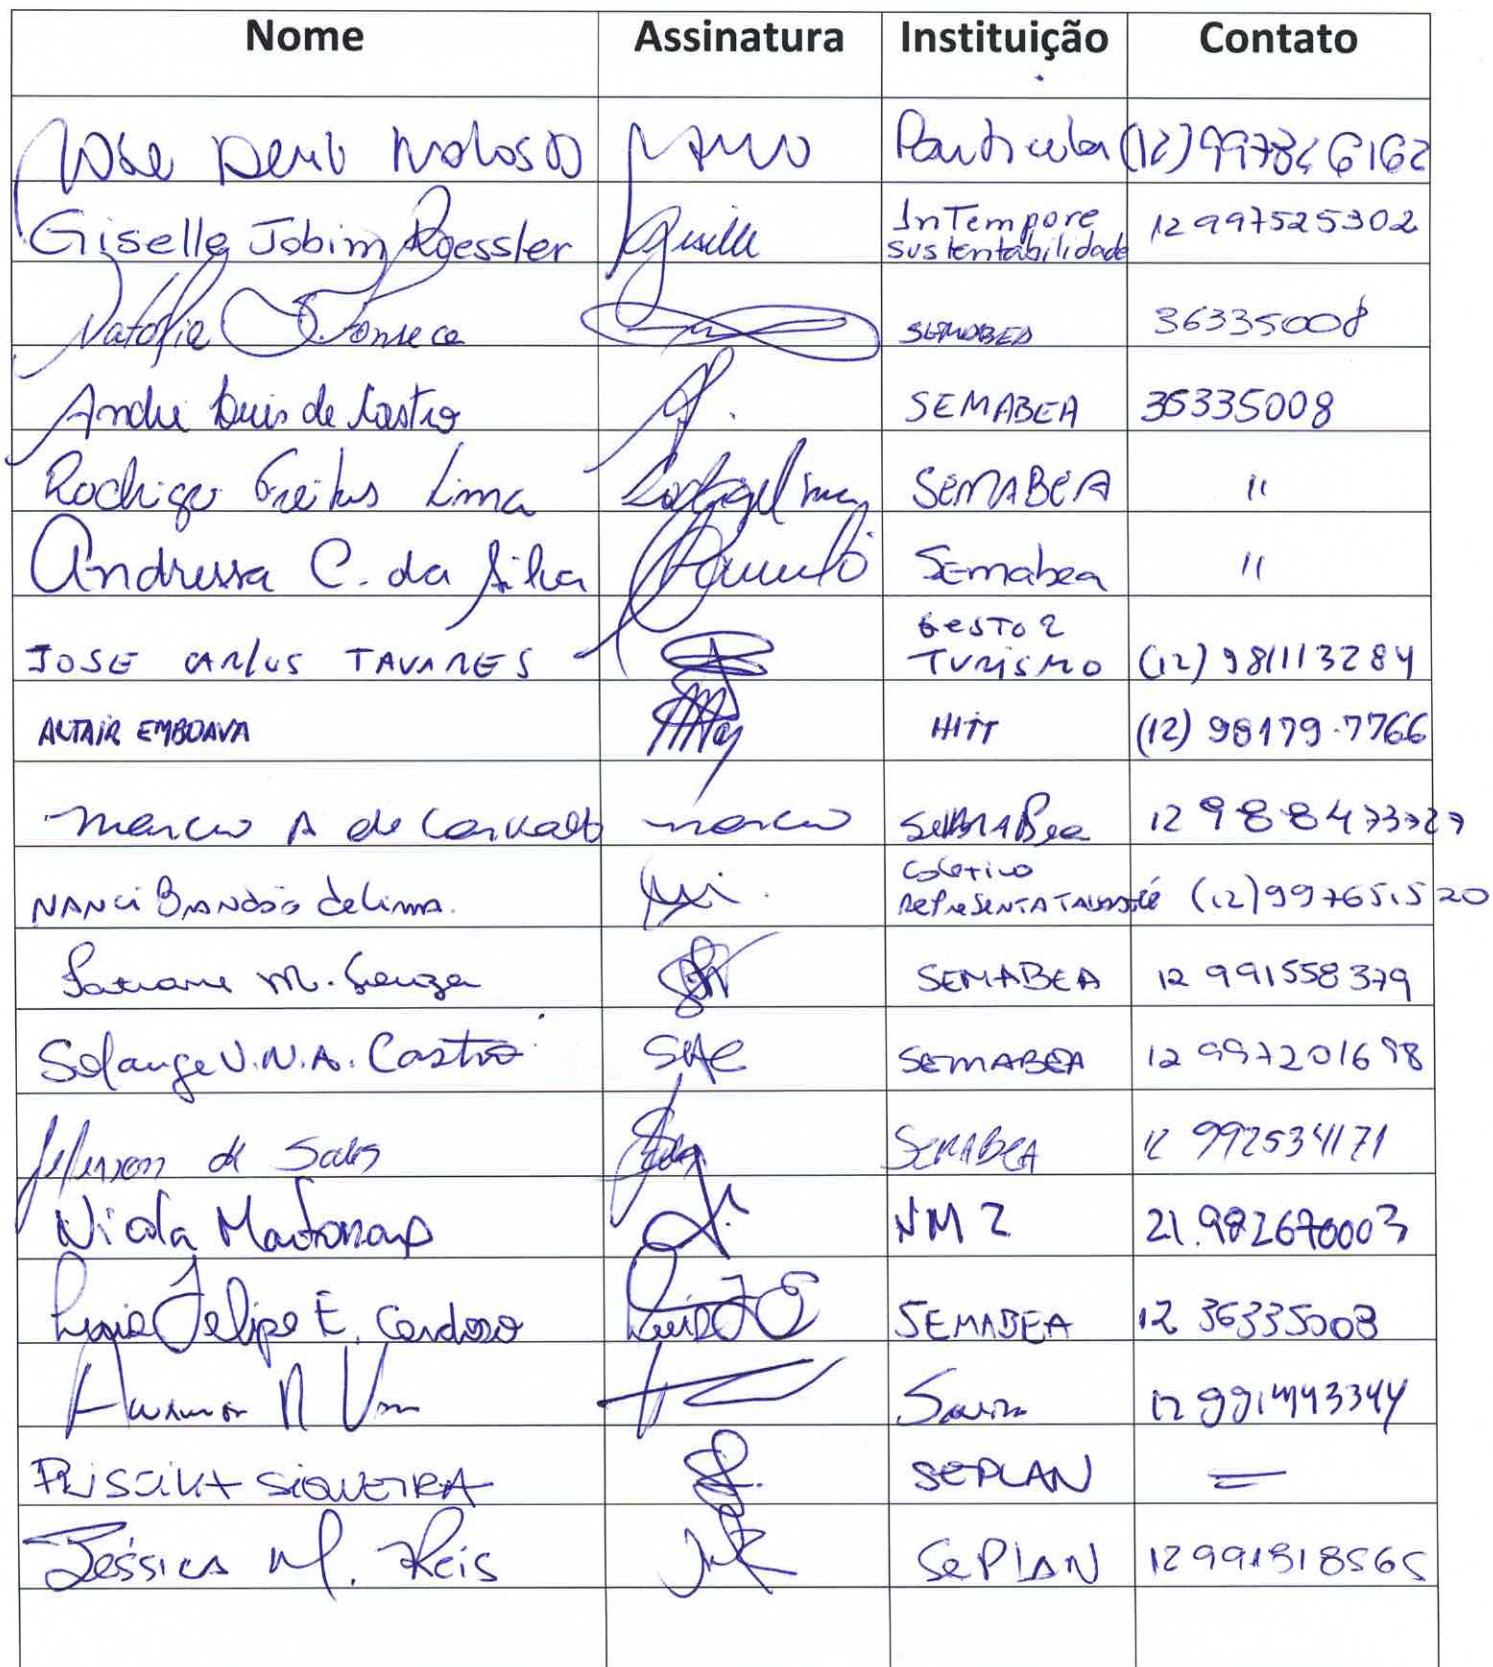 Nome Assinatura Instituição Contato
José Particular (12)
Giselle Jobim Roessler Giselle InTempore sustentabilidade 12 997525302
Natalia Fonseca SEMABEA 36335008
André Luis de Castro SEMABEA 36335008
Rodrigo Freitas Lima SEMABEA "
Andressa C. da Silva Semabea "
JOSE CARLOS TAVARES GESTOR TURISMO (12) 981113284
ALTAIR EMBOAVA HITT (12) 98179-7766
Marcio A de Carvalho marcio SEMABea 12 988473727
NANCI BRANDÃO de Lima. Coletivo REPRESENTA TAUBATÉ (12) 997651520
Tatiane M. Souza SEMABEA 12 991558379
Solange V.N.A. Castro SEMABEA 12 997201698
Jefferson de Sales SEMABEA 12 992534171
Nicola NM2 21.982670003
Luis Felipe E. Cardoso SEMABEA 12 36335008
12
PRISCILA SIQUEIRA SEPLAN =
Jéssica M. Reis SEPLAN 12991818565